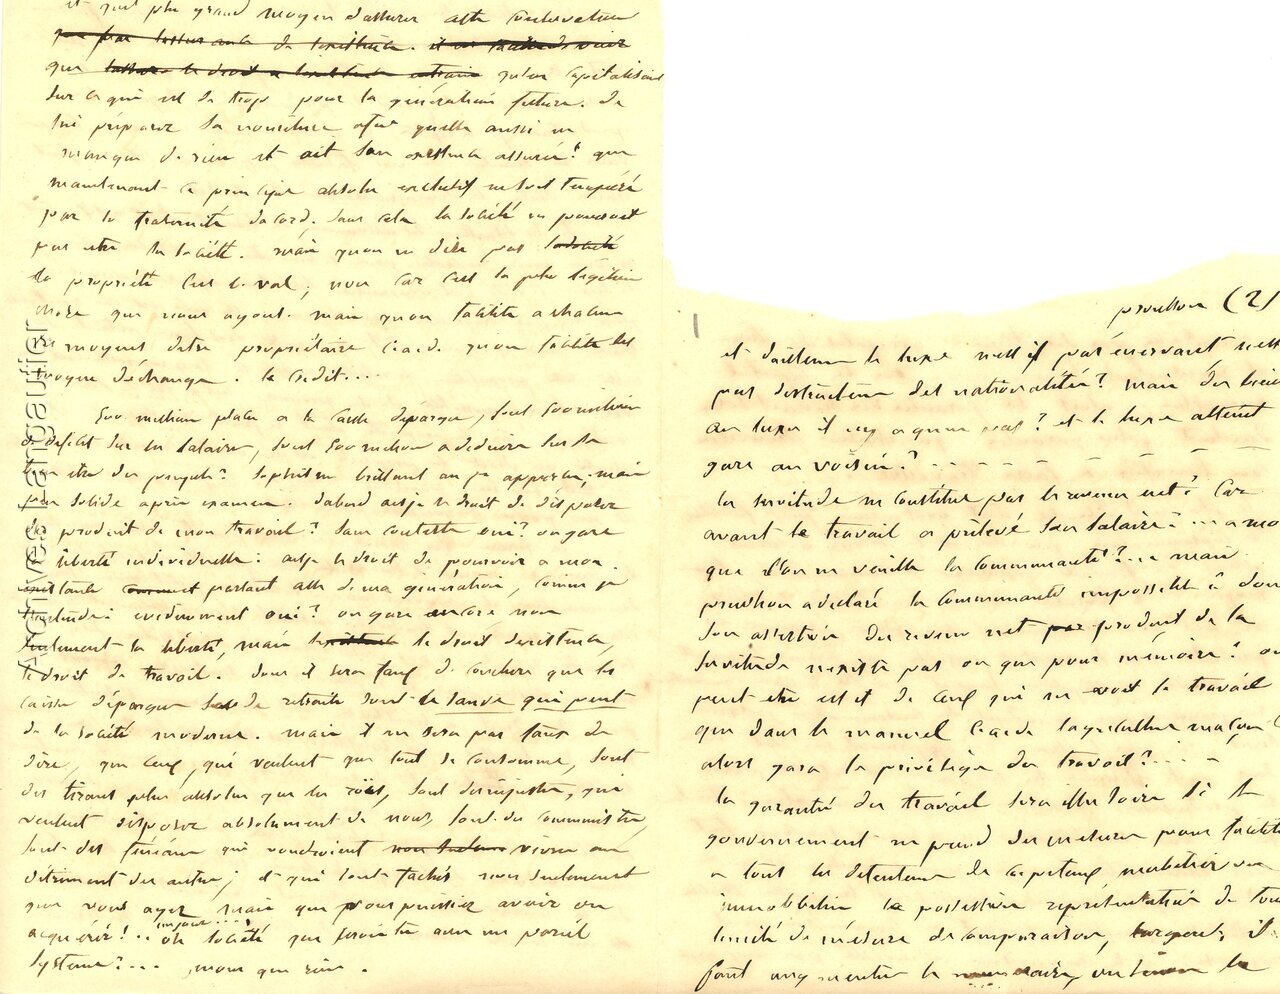 et quel plus grand moyen d'assurer cette conservation
que
que qu'on capitalisant
sur ce qui est de trop pour la génération future. de
lui préparer sa nourriture afin qu'elle aussi ne
manque de rien et ait son existence assurée? que
maintenant ce principe absolu exclusif ne soit tempéré
par la fraternité d'acord. sans cela la société ne pourroit
pas etre la société. mais qu'on ne dise pas
la propriété c'est le vol, non car c'est la plus légitime
chose que nous ayont. mais qu'on facilite a chacun
les moyens d'etre propriétaire c. a. d. qu'on facilite les
moyens d'échange. le credit....
500 million placés a la caisse d'épargne, sont 500 million
de deficit sur les salaires, sont 500 million a deduire sur le
bien etre du peuple? Sophisme brillant en apparence, mais
peu solide après examen. d'abord ai-je le droit de disposer
du produit de mon travail? sans conteste oui? ou gare
la liberté individuelle: ai-je le droit de pourvoir a mon
partant celle de ma génération, comme je
l'entends: evidemment oui? ou gare encore non
seulement la liberté, mais le droit d'existence,
le droit de travail. donc il sera faux de conclure que les
caisses d'épargne de retraite sont le cancer qui
de la société moderne. mais il ne sera pas faux de
dire, que ceux, qui veulent que tout se consomme, sont
des tirans plus absolus que les rois, sont des injustes, qui
veulent disposer absolument de nous, sont des communistes,
sont des faineans qui voudroient vivre au
detriment des autres; et qui sont fachés non seulement
que vous ayez mais que vous puissiez avoir ou
acquérir! .. un jour
oh société que ferois tu avec un pareil
systeme?... mourir que rien.
proudhon (2)
et d'ailleurs le luxe n'est il pas énervant, n'est
pas destructeur des nationalités? mais du bien
au luxe il n'y a qu'un pas? et le luxe atteint
gare au voisin? . . . - - - - - - -
la servitude ne constitue pas le revenu net? Car
avant le travail a prélevé son salaire? ... a moins
que l'on ne veuille la communauté? ... mais
prudhon a declaré la communauté impossible? donc
son assertion du revenu net produit de la
servitude n'existe pas ou que pour mémoire? ou
peut etre est-il de ceux qui ne voit le travail
que dans le manuel c. a. d. l'agriculture maçon
alors gare le privilége du travail? ....
la garantie du travail sera illusoire si le
gouvernement ne prend des mesures pour faciliter
a tout les detenteurs de capitaux mobiliers ou
immobiliers la possession représentative de
de mesure de comparaison, il
faut augmenter le numéraire,
Archives Languautier